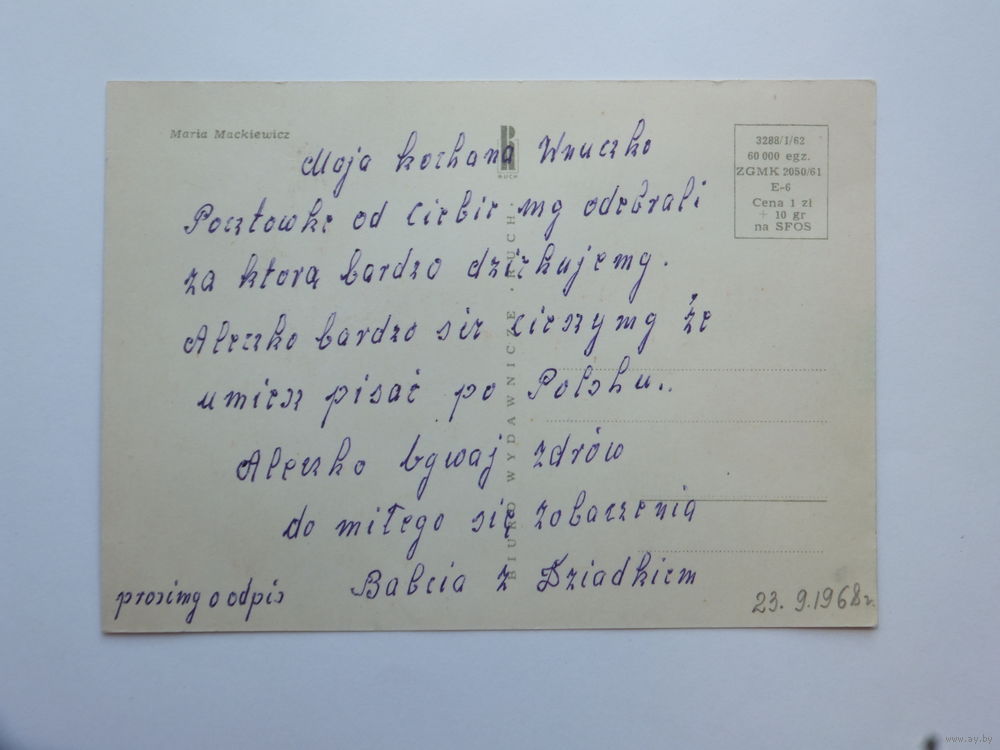 Maria Mackiewicz
RUCH
3288/I/62
60 000 egz.
ZGMK 2050/61
E-6
Cena 1 zł
+ 10 gr
na SFOS
Moja kochana Wnuczko
Pocztowke od Ciebie my odebrali
za ktorą bardzo dziękujemy.
Aleczko bardzo się cieszymy że
umiesz pisać po Polsku..
Aleczko bywaj zdrów
do miłego się zobaczenia
Babcia z Dziadkiem
prosimy o odpis
23. 9. 1968 r.
BIURO WYDAWNICZE · RUCH ·
www.ay.by